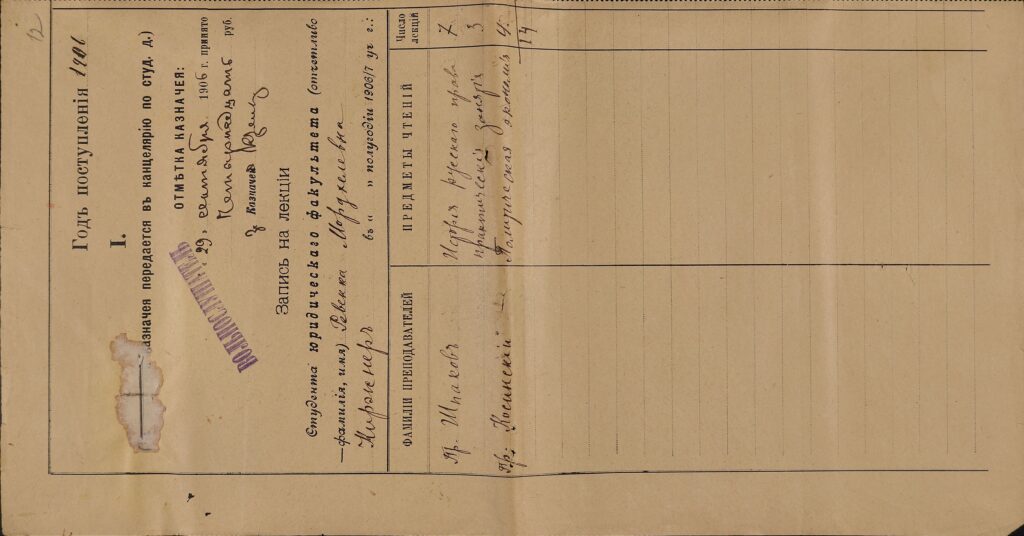 12
Годъ поступленія 1906
I.
азначея передается въ канцелярію по студ. д.)
ОТМѢТКА КАЗНАЧЕЯ:
ВОЛЬНОСЛУШАТЕЛЬ
„29„ сентября 1906 г. принято
Пятнадцать руб.
Казначей
Запись на лекціи
Студента юридическаго факультета (отчетливо
—фамилія, имя) Ревекка Мордхелевна
Киржнеръ въ „ „ полугодіи 1906/7 уч г.:
ФАМИЛІИ ПРЕПОДАВАТЕЛЕЙ ПРЕДМЕТЫ ЧТЕНІЙ Число лекцій
Пр. Шпаковъ Исторія русскаго права 7
практическія занятія 3
Пр. Косинскій Политическая экономія 4
14